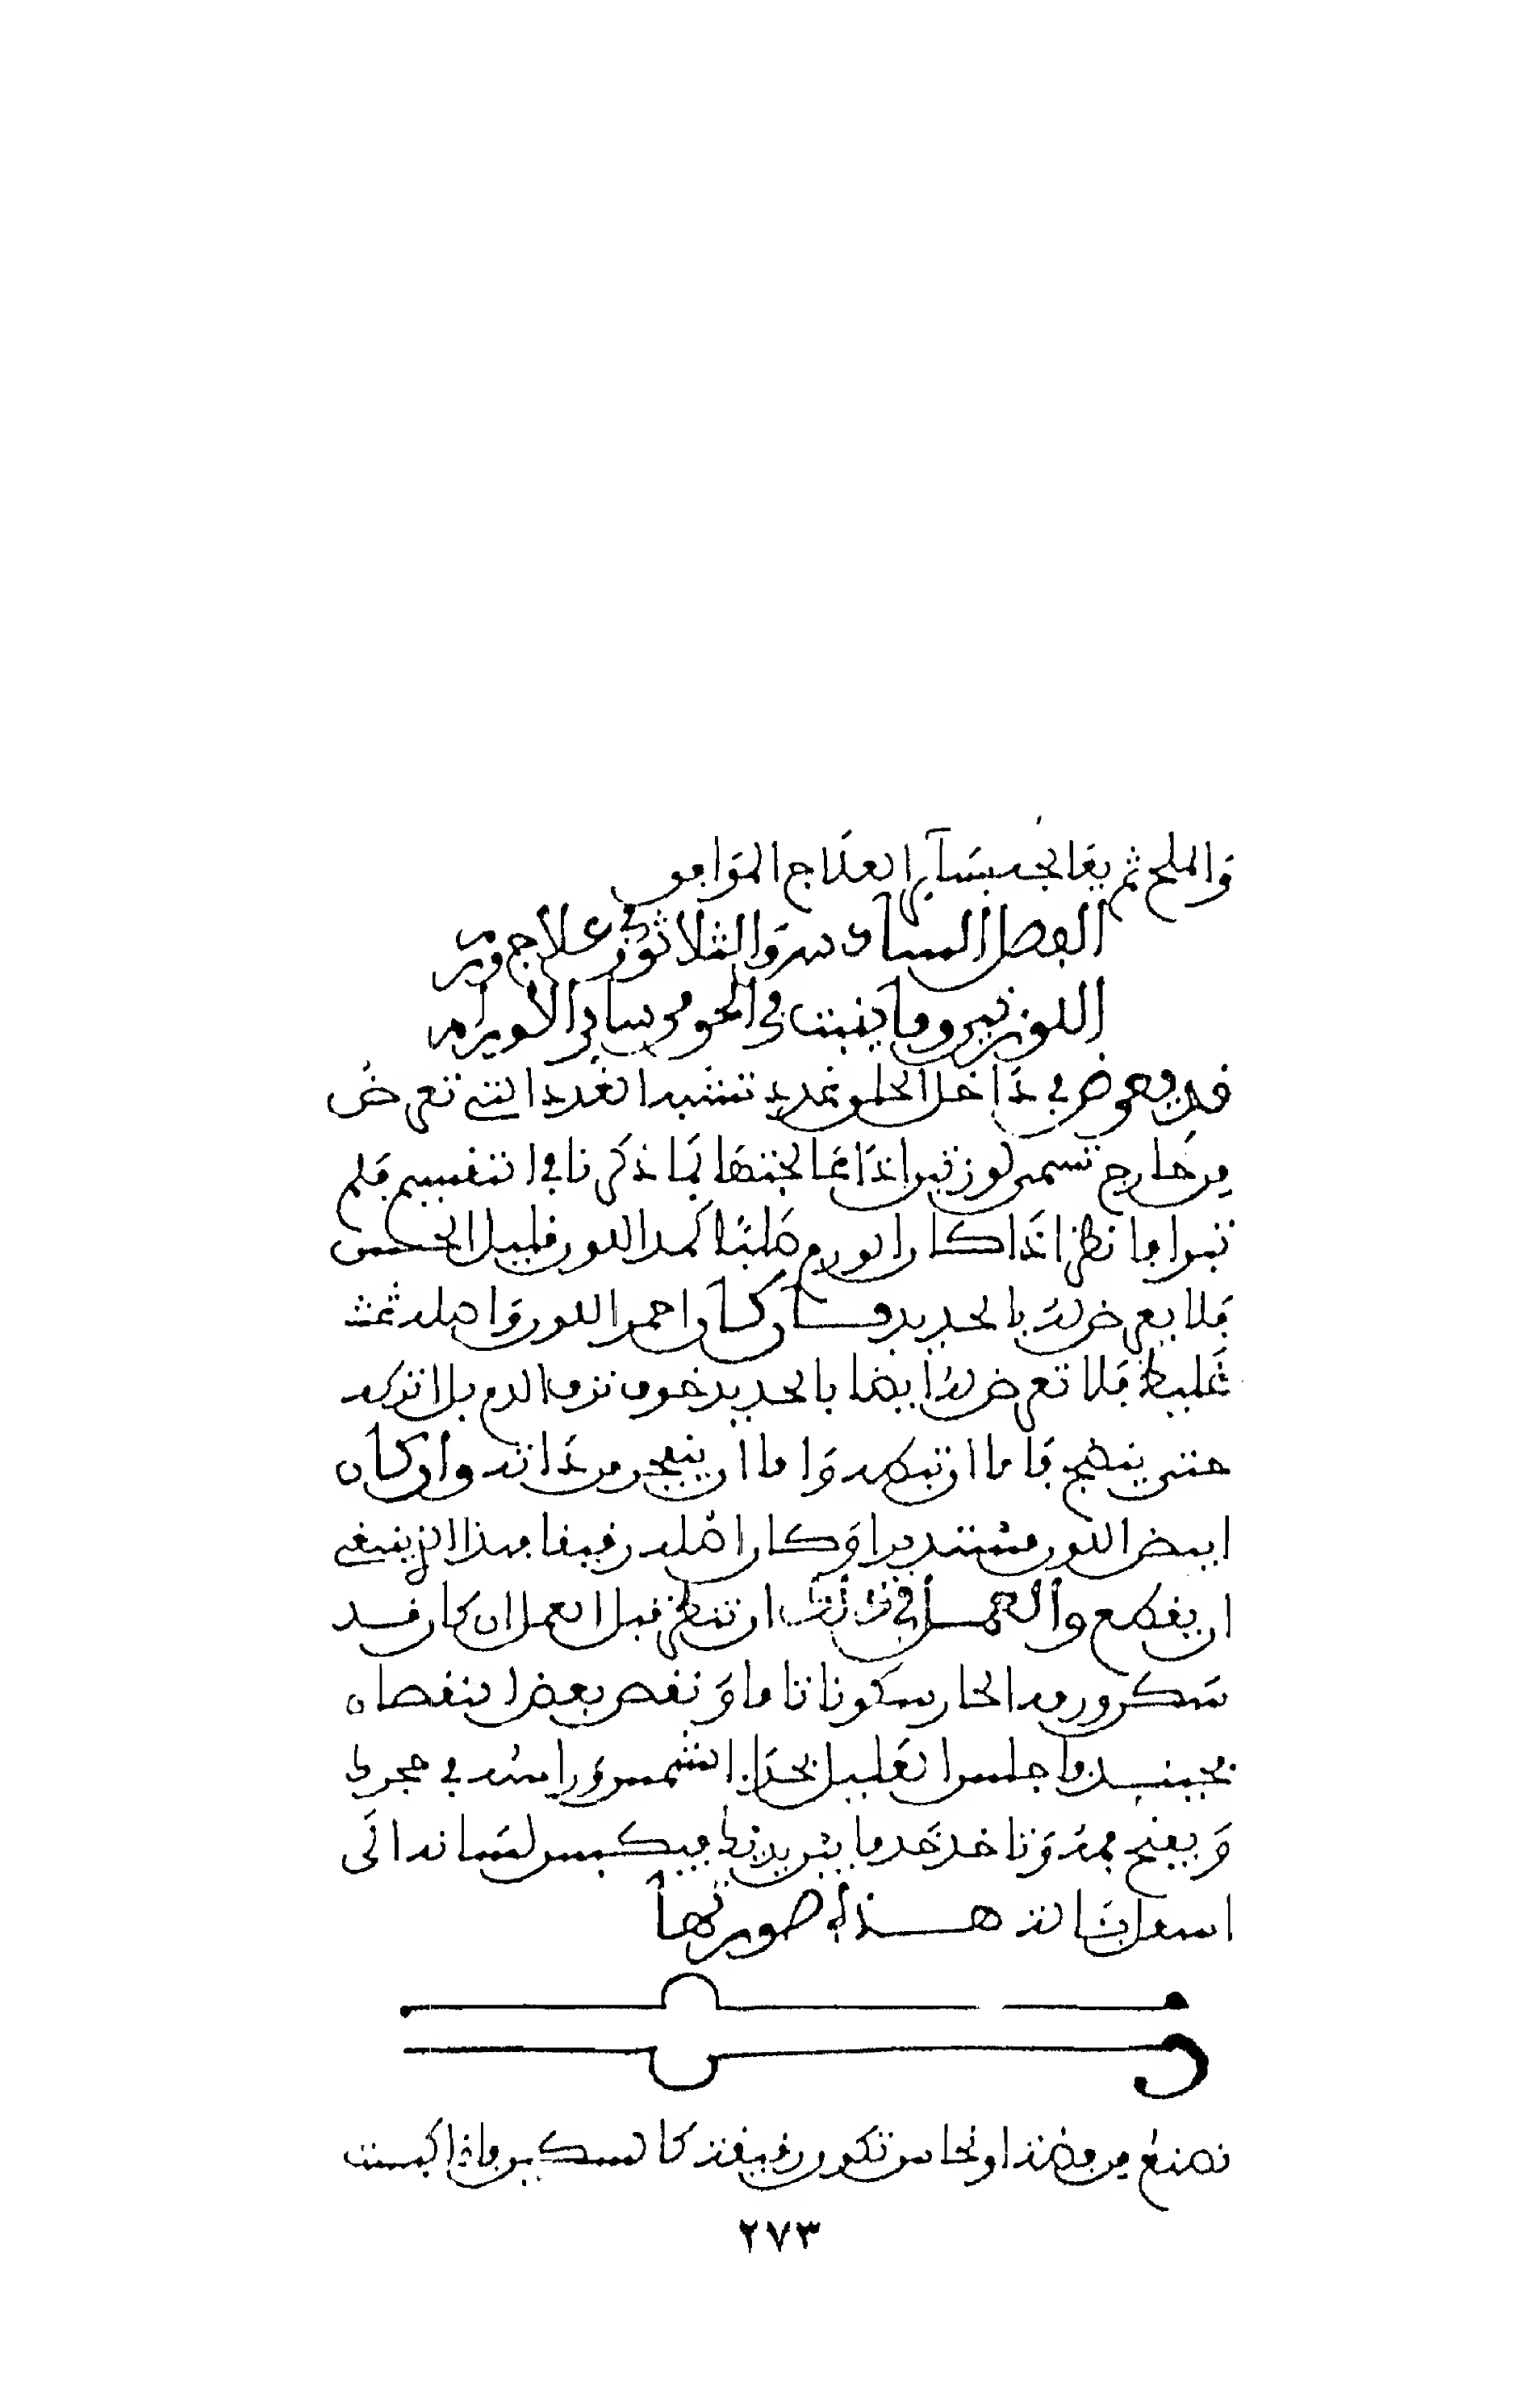 والملح ثم يعالجه بسائر العلاج الموافق
الفصل السادس والثلاثون في علاج ورم
اللوزتين وما ينبت في الحلق من سائر الاورام
قد يعرض في داخل الحلق غدد تشبه الغدد التي تعرض
من خارج تسمى لوزتين اذا عالجتها بما ذكرنا في التقسيم فلم
تبرا فانظر اذا كان الورم صلبا كمد اللون قليل الحس
فلا تعرض له بالحديد وان كان احمر اللون واصله
غليظ فلا تعرض له ايضا بالحديد خوف نزف الدم بل اتركه
حتى ينضج فاما ان تبطه واما ان ينفجر من ذاته وان كان
ابيض اللون مستديرا وكان اصله رقيقا فهذا الذي ينبغي
ان يقطع والعمل في ذلك ان تنظر قبل العمل ان كان قد
سكن ورمه الحار سكونا تاما او نقص بعض النقصان
فحينئذ فاجلس العليل بحذاء الشمس وراسه في حجرك
ويفتح فمه وتاخذ خدما بين يديك فيكبس لسانه الى
اسفل بالة هذه صورتها
تصنع من فضة او نحاس تكون رقيقة كالسكين فاذا كبست
٢٧٣